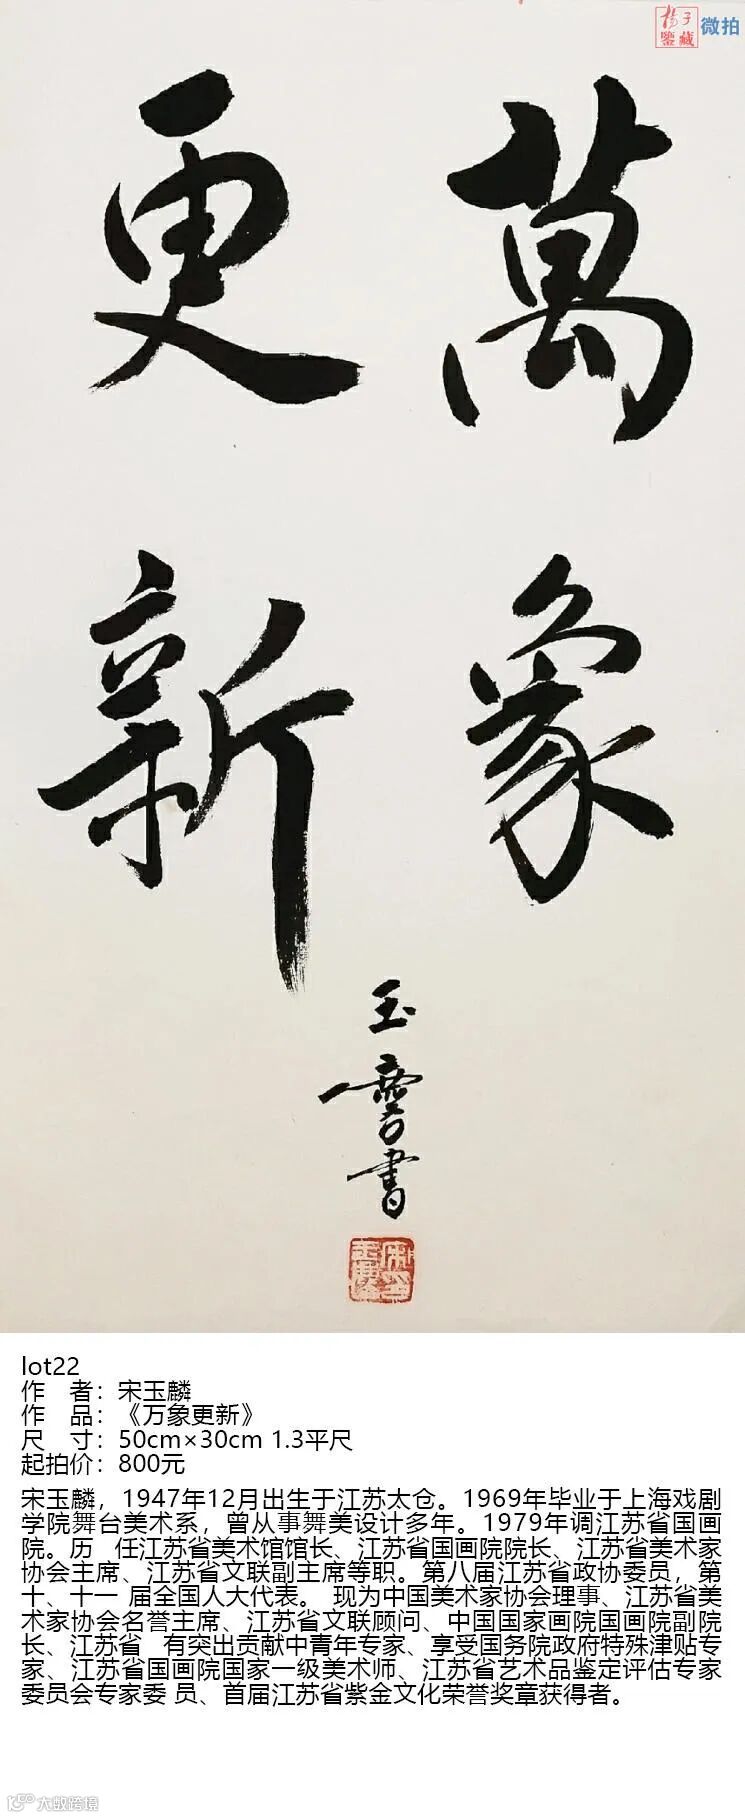 楊子鑒藏 微拍
萬象
更新
玉麐書
lot22
作 者：宋玉麟
作 品：《万象更新》
尺 寸：50cm×30cm 1.3平尺
起拍价：800元
宋玉麟，1947年12月出生于江苏太仓。1969年毕业于上海戏剧
学院舞台美术系，曾从事舞美设计多年。1979年调江苏省国画
院。历 任江苏省美术馆馆长、江苏省国画院院长、江苏省美术家
协会主席、江苏省文联副主席等职。第八届江苏省政协委员，第
十、十一 届全国人大代表。 现为中国美术家协会理事、江苏省美
术家协会名誉主席、江苏省文联顾问、中国国家画院国画院副院
长、江苏省 有突出贡献中青年专家、享受国务院政府特殊津贴专
家、江苏省国画院国家一级美术师、江苏省艺术品鉴定评估专家
委员会专家委 员、首届江苏省紫金文化荣誉奖章获得者。
大数跨境